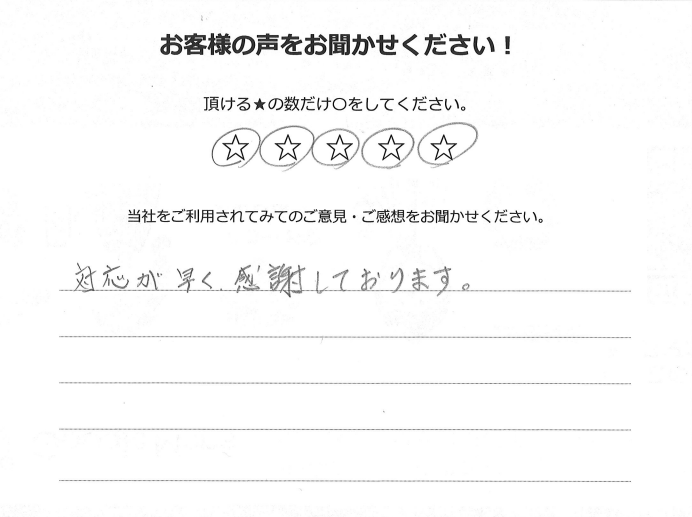 お客様の声をお聞かせください！
頂ける★の数だけ○をしてください。
☆ ☆ ☆ ☆ ☆
当社をご利用されてみてのご意見・ご感想をお聞かせください。
対応が早く、感謝しております。